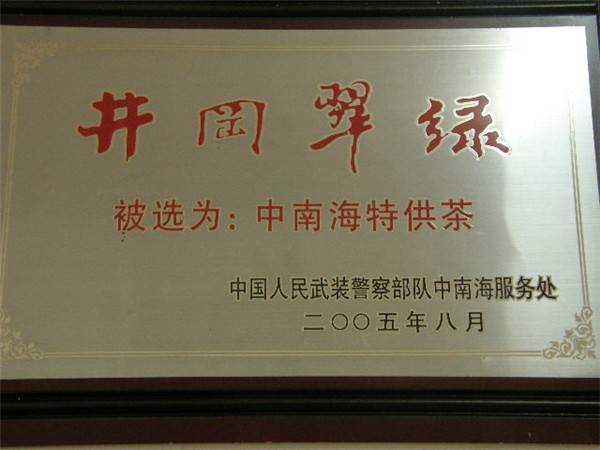 井岡翠绿
被选为:中南海特供茶
中国人民武装警察部队中南海服务处
二〇〇五年八月